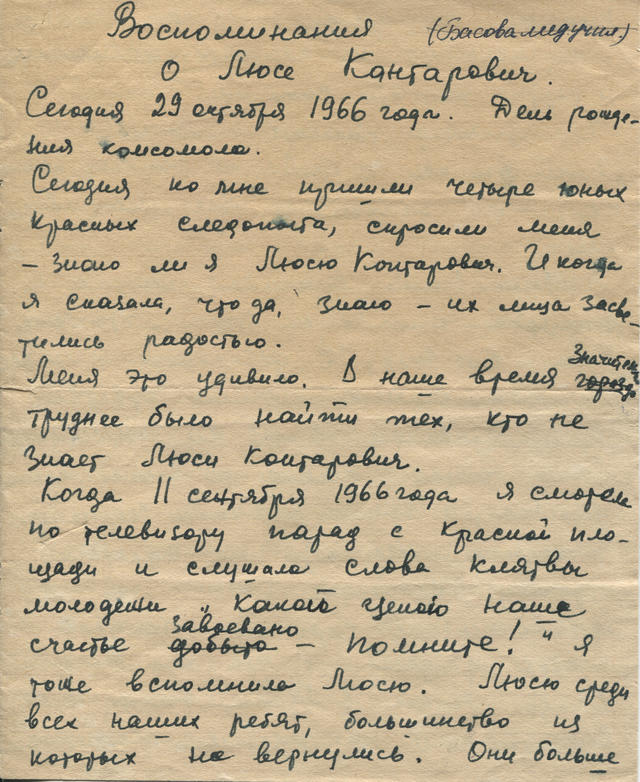 Воспоминания
О Люсе Кантарович.
Сегодня 29 октября 1966 года. День рожде-
ния комсомола.
Сегодня ко мне пришли четыре юных
красных следопыта, спросили меня
– знаю ли я Люсю Контарович. И когда
я сказала, что да, знаю – их лица засве-
тились радостью.
Меня это удивило. В наше время
труднее было найти тех, кто не
знает Люси Контарович.
Когда 11 сентября 1966 года я смотрела
по телевизору парад с Красной пло-
щади и слушала слова клятвы
молодежи „Какой ценою наше
завоевано
счастье добыто – Помните!" я
тоже вспомнила Люсю. Люсю среди
всех наших ребят, большинство из
которых не вернулись. Они больше